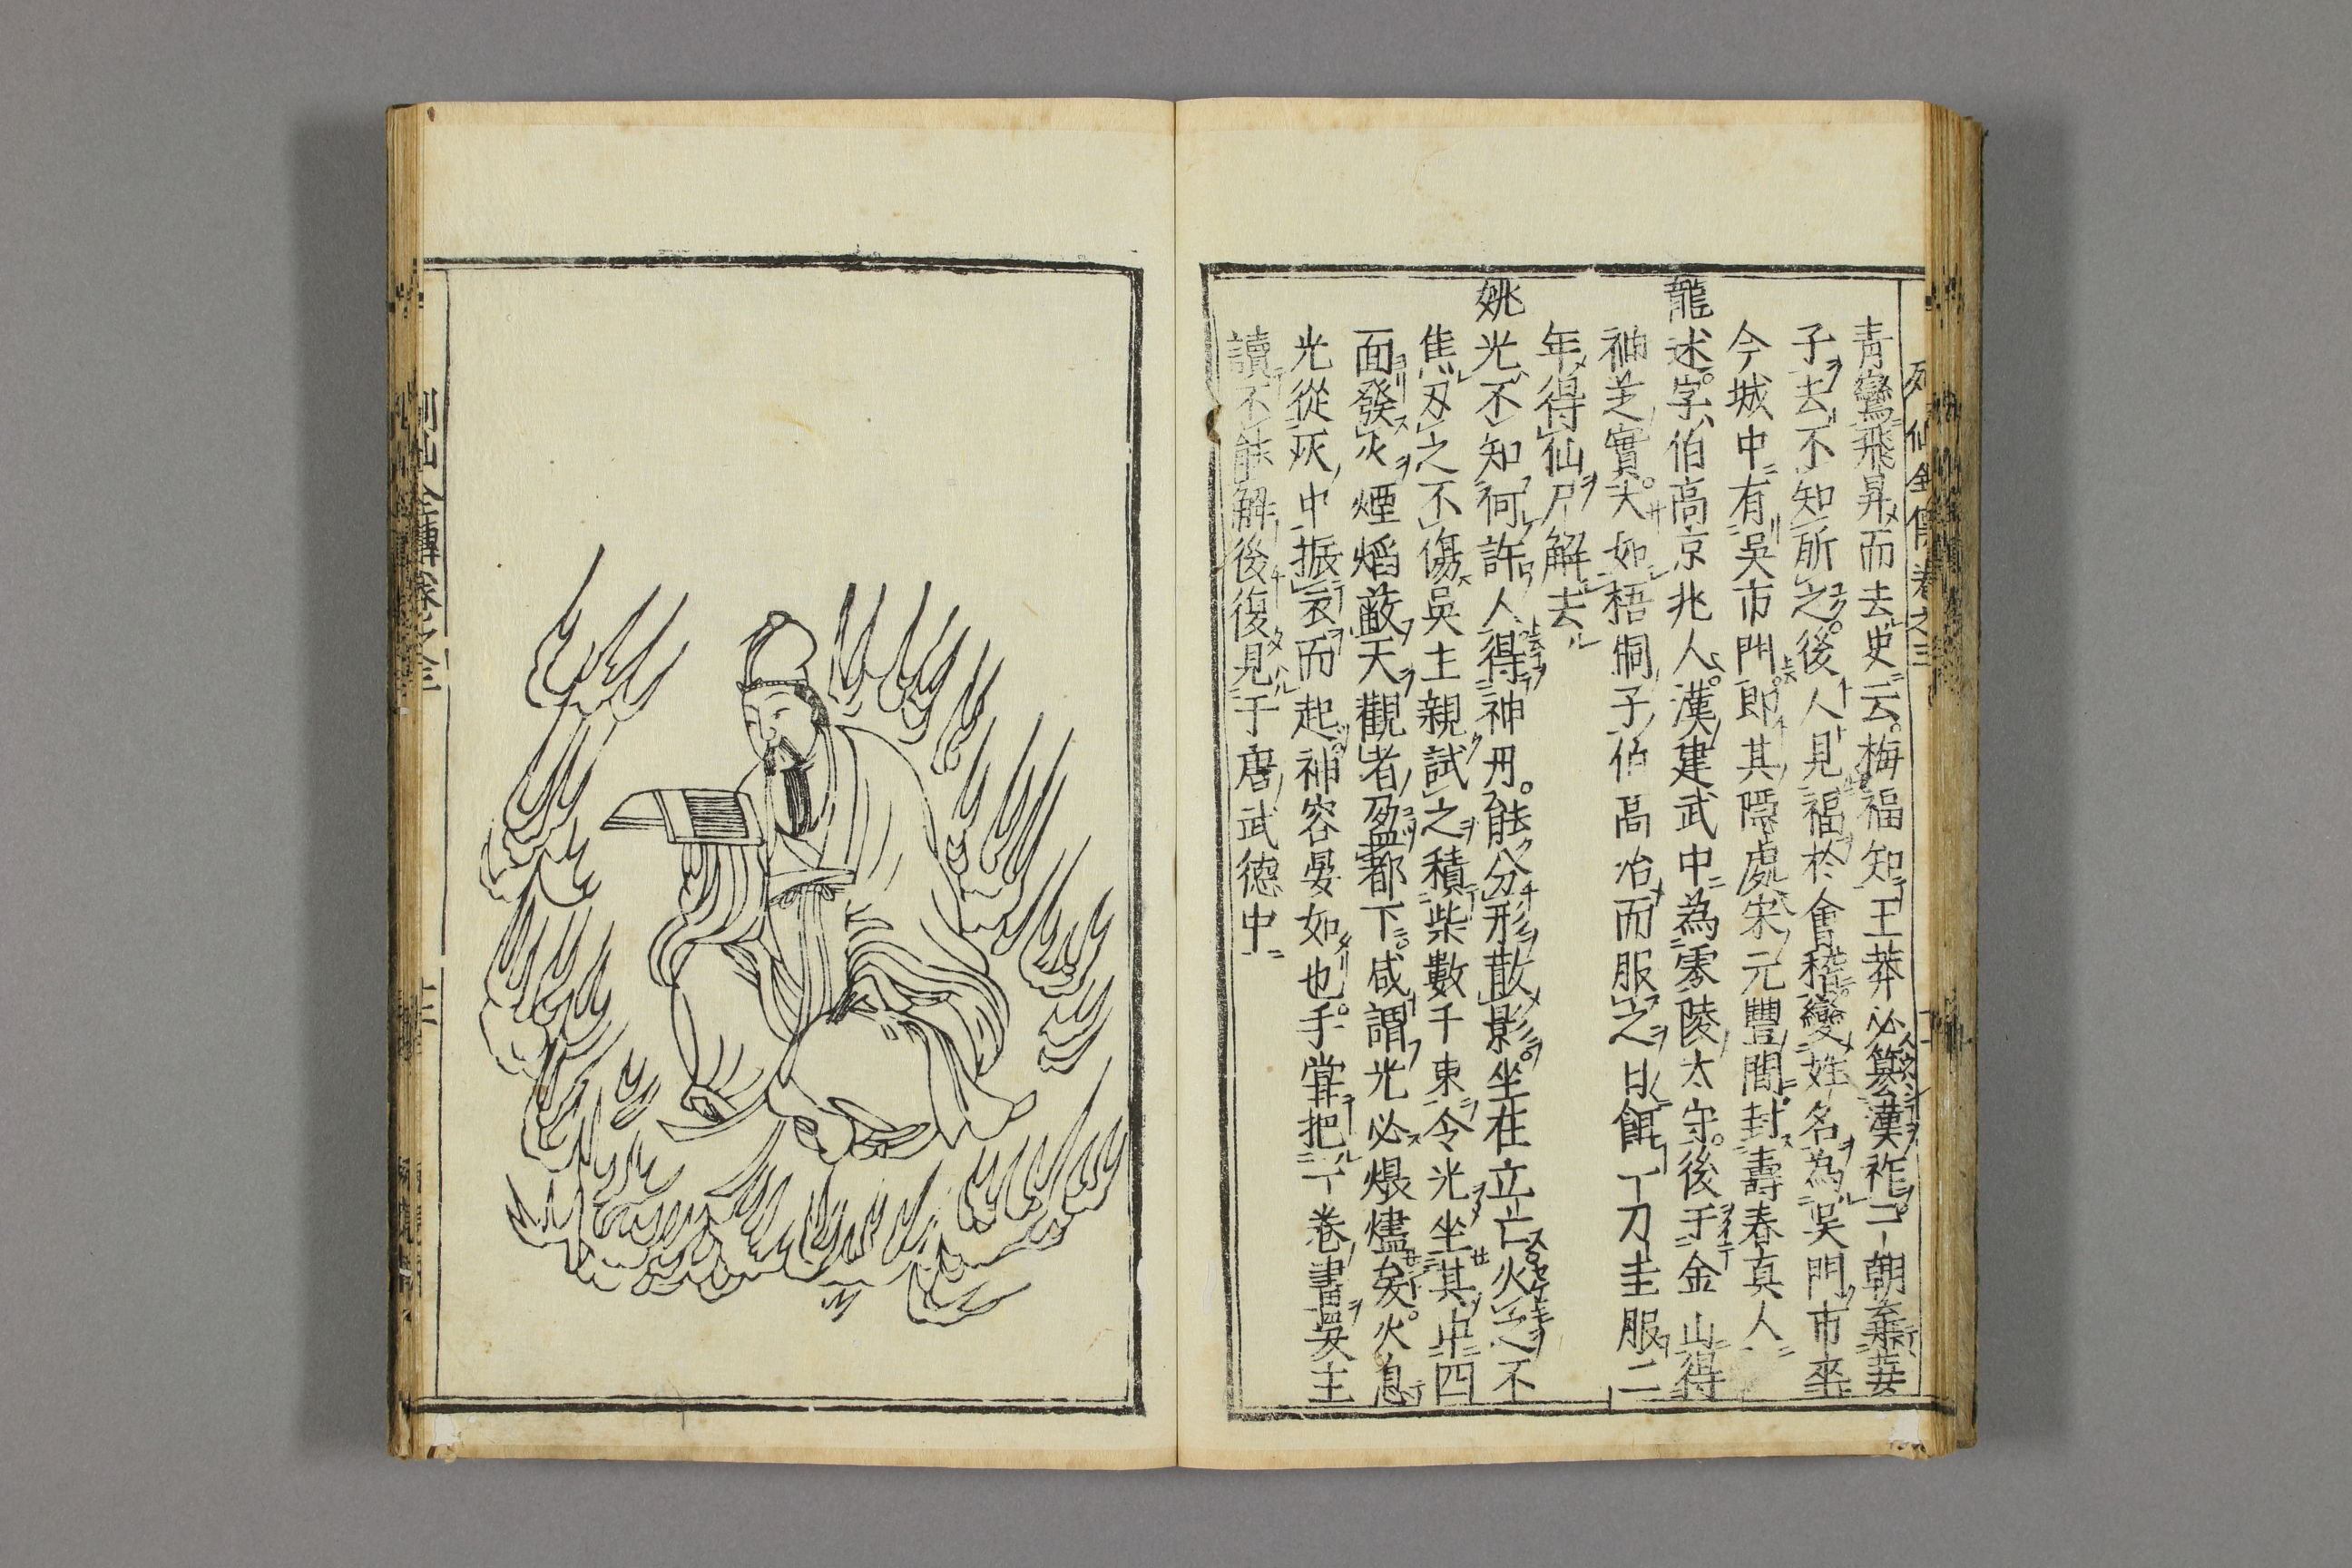 列仙全傳卷之三
青鸞飛昇而去史云梅福知王莽必篡漢祚一朝棄妻
子去不知所之後人見福於會稽變姓名為吳門市卒
今城中有吳市門即其隱處宋元豐間封壽春真人
龍述字伯高京兆人漢建武中為零陵太守後于金山得
神芝實大如梧桐子伯高冶而服之日餌一刀圭服二
年得仙尸解去
姚光不知何許人得神丹能分形散影坐在立亡火之不
焦刃之不傷吳主親試之積柴數千束令光坐其中四
面發火煙焰蔽天觀者盈都下咸謂光必煨燼矣火息
光從灰中振衣而起神容晏如也手掌把一卷書吳主
讀不能解後復見于唐武德中